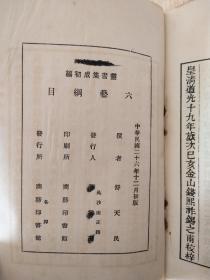 皇清道光十九年歲次己亥金山錢熙祚錫之甫校梓
中華民國二十六年十二月初版
叢書集成初編
六藝綱目
撰者 舒天民
發行人
印刷所 商務印書館
發行所 商務印書館